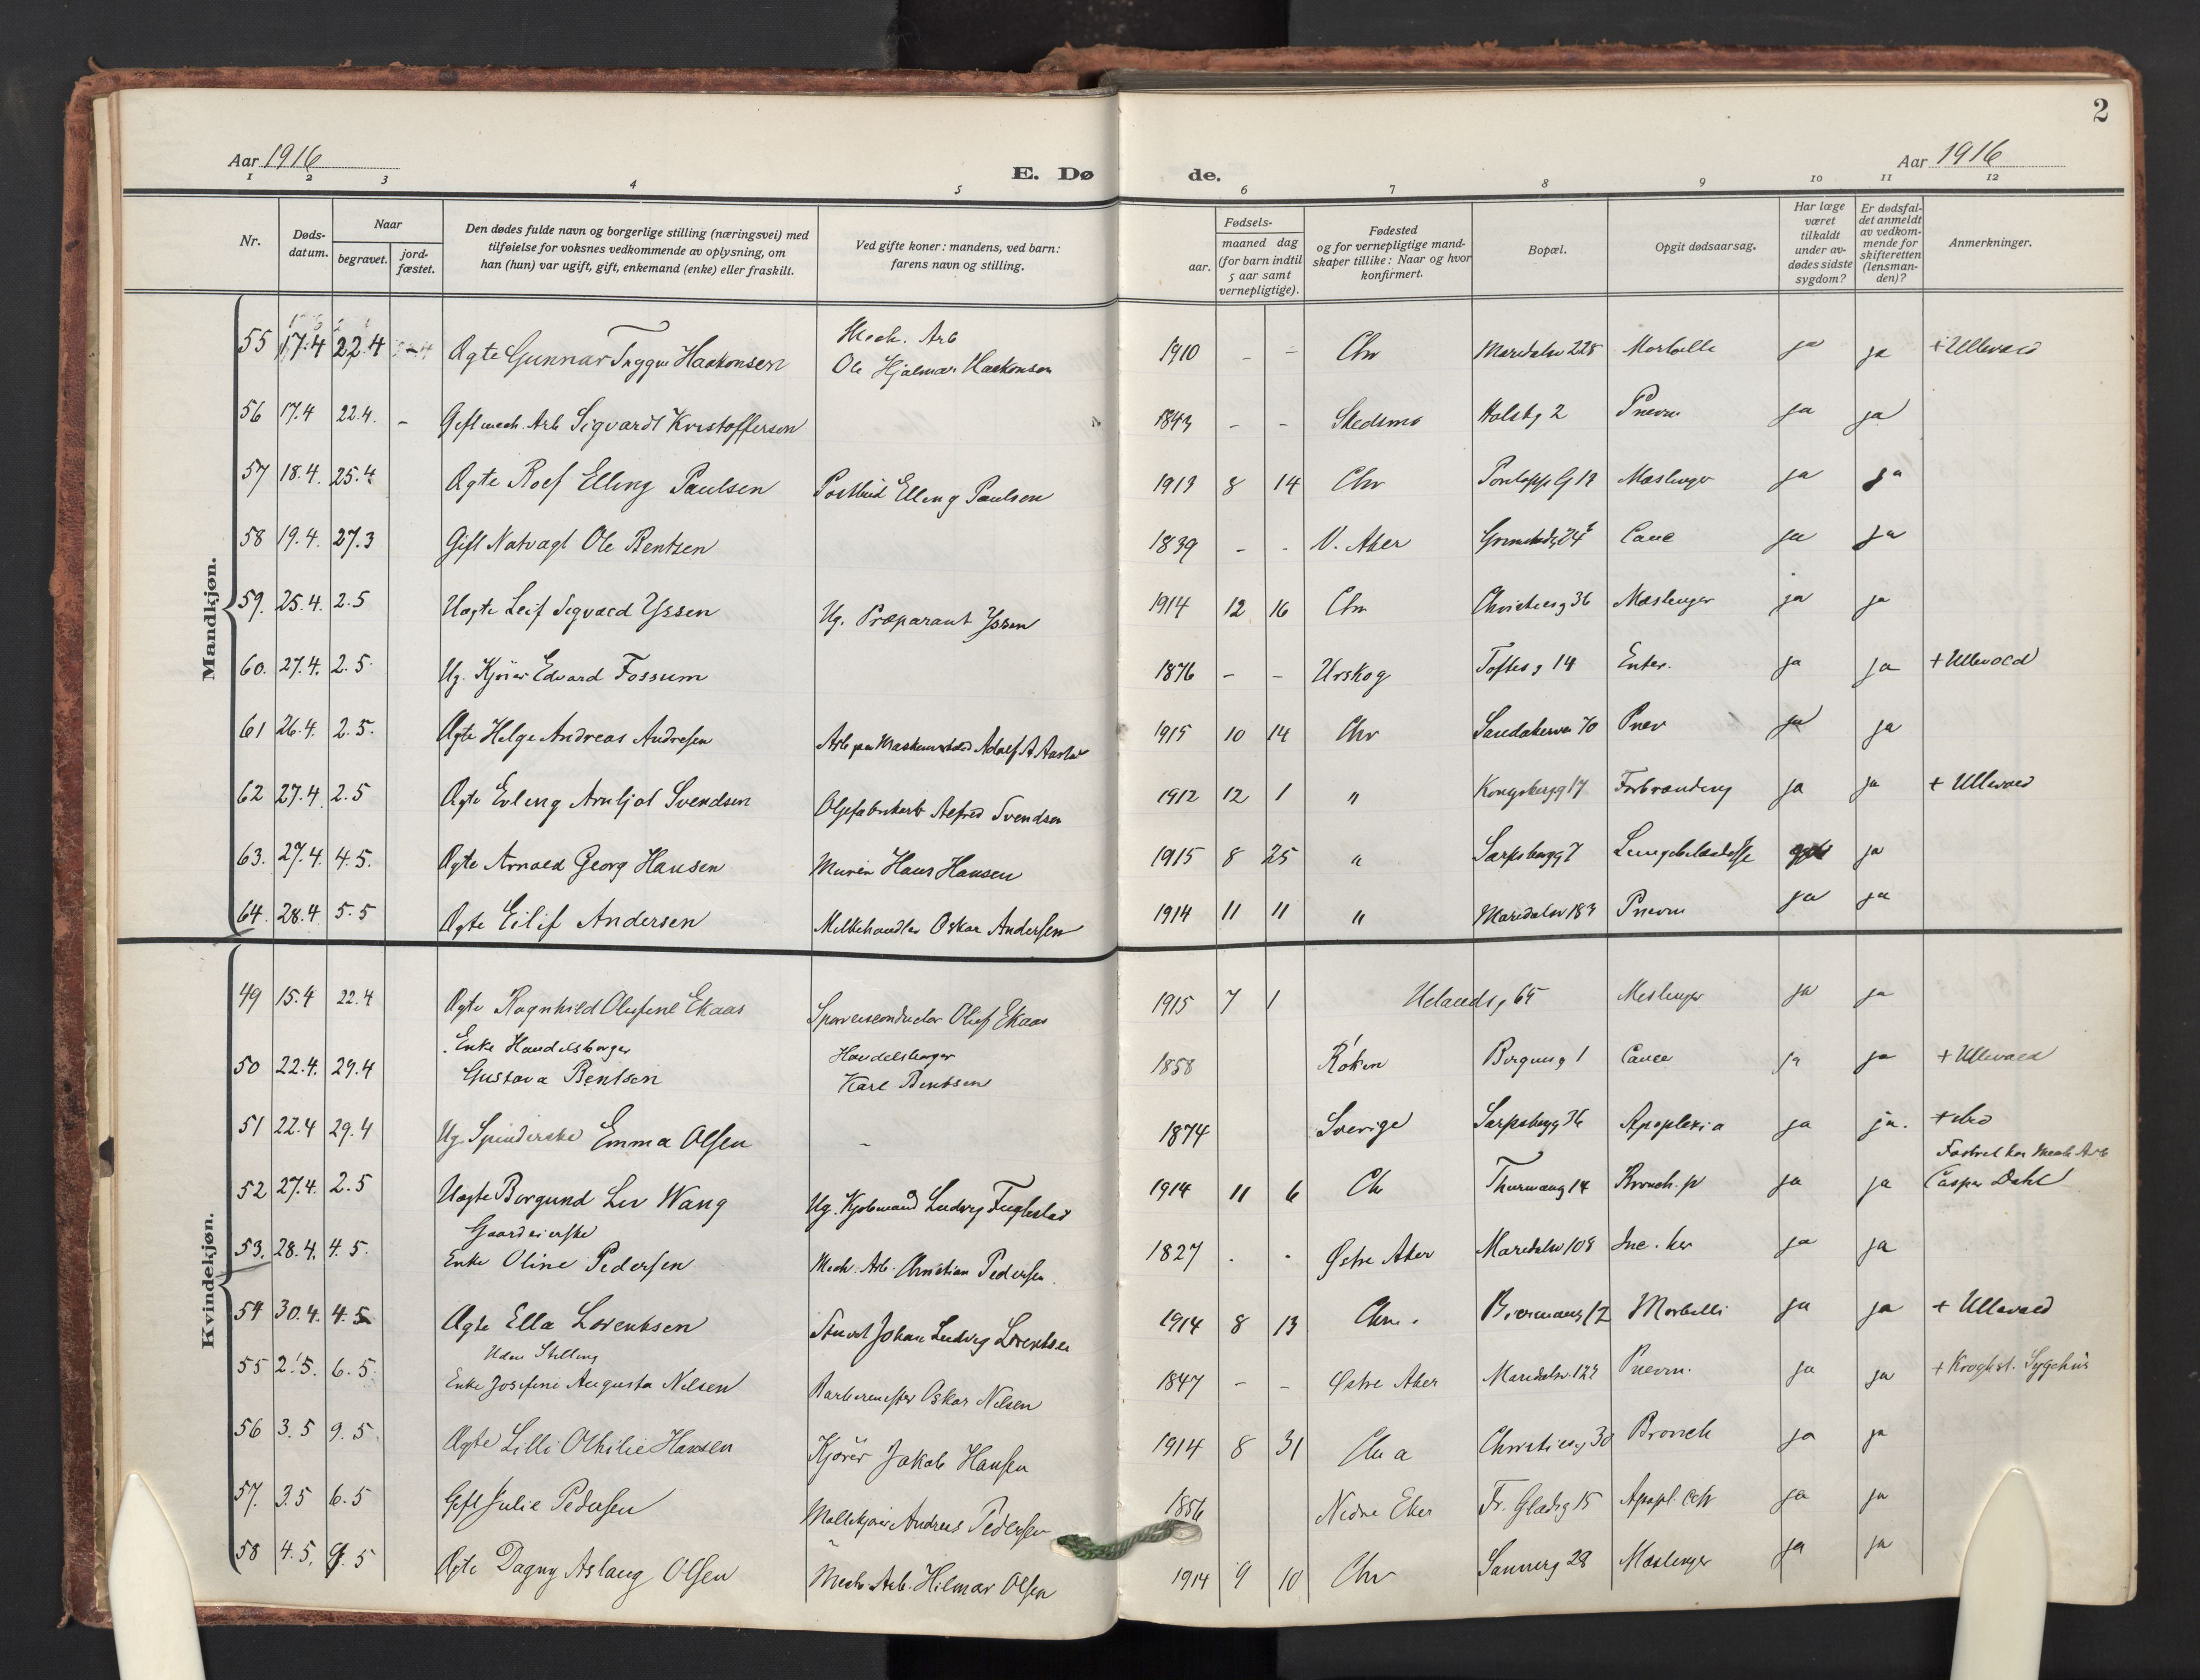 2
Aar 1916
E. Dø
de.
Aar 1916
1 2 3 4 5 6 7 8 9 10 11 12
Nr.
Døds-datum.
Naar
begravet.
jord-fæstet.
Den dødes fulde navn og borgerlige stilling (næringsvei) med
tilføielse for voksnes vedkommende av oplysning, om
han (hun) var ugift, gift, enkemand (enke) eller fraskilt.
Ved gifte koner: mandens, ved barn:
farens navn og stilling.
Fødsels-
aar.
maaned dag
(for barn indtil
5 aar samt
vernepligtige).
Fødested
og for vernepligtige mand-
skaper tillike: Naar og hvor
konfirmert.
Bopæl.
Opgit dødsaarsag.
Har læge
været
tilkaldt
under av-
dødes sidste
sygdom?
Er dødsfal-
det anmeldt
av vedkom-
mende for
skifteretten
(lensman-
den)?
Anmerkninger.
Mandkjøn.
55 17.4 22.4 Ægte Gunnar Tryggve Haakonsen Mech. Arb Ole Hjalmar Haakonsen 1910 - - Chr Maridalsv 228 Morbilli ja ja + Ullevaal
56 17.4 22.4. - Gift mech. Arb Sigvardt Kristoffersen 1843 - - Skedsmo Holstg 2 Pnevm ja ja
57 18.4. 25.4 Ægte Rolf Elling Paulsen Postbud Elling Paulsen 1913 8 14 Chr Mæslinger ja ja
58 19.4. 27.3 Gift Natvagt Ole Bentsen 1839 - - V. Aker Canc ja ja
59. 25.4. 2.5 Uægte Leif Sigvard Yssen Ug. Præparant Yssen 1914 12 16 Chr Christiesg 36 Mæslinger ja ja
60. 27.4. 2.5. Ug. Kjører Edvard Fossum 1876 - - Urskog Toftesg 14 Enter. ja ja + Ullevold
61 26.4. 2.5. Ægte Helge Andreas Andresen 1915 10 14 Chr Sandakerve 70 Pnev ja ja
62 27.4. 2.5 Ægte Erling Arnljot Svendsen Oljefabrikarb Alfred Svendsen 1912 12 1 " Kongsbergg 17 Forbrænding ja ja + Ullevaal
63. 27.4. 4.5. Ægte Arnold Georg Hansen Murer Hans Hansen 1915 8 25 " Sarpsborgg 7 Lungebetændelse ja
64. 28.4. 5.5 Ægte Eilif Andersen Melkehandler Oskar Andersen 1914 11 11 " Maridalsv 183 Pnevm ja ja
Kvindekjøn.
49 15.4 22.4 Ægte Ragnhild Olufine Ekaas Sporveisconductor Oluf Ekaas 1915 7 1 Uelandsg 65 Meslinger ja ja
50 22.4. 29.4 Enke Handelsborger Gustava Bentsen Handelsborger Karl Bentsen 1858 Røken Bergensg 1 Cancer ja ja + Ullevaal
51 22.4 29.4 Ug. Spinderske Emma Olsen - 1874 Sverige Sarpsborgg 36 Apoplexia ja ja.
52 27.4. 2.5 Uægte Borgund Liv Wang Ug. Kjøbmand Ludvig Fuglestad 1914 11 6 Ch Thurmannsg 14 Bronch. p ja ja Fostret hos Mech Arb Caspar Dahl
53. 28.4. 4.5. Gaardeierske Enke Oline Pedersen Mech. Arb. Christian Pedersen. 1827 . - Østre Aker Maridalsv 108 ja ja
54 30.4. 4.5 Ægte Ella Lorentsen Johan Ludvig Lorentsen 1914 8 13 Chr. Biermannsg 12 Morbilli ja ja + Ullevaal
55 2.5. 6.5. Uden Stilling Enke Josefine Augusta Nilsen Barbermester Oskar Nilsen 1847 - - Østre Aker Maridalsv. 123 Pnevm. ja ja + Kroghst. Sygehus
56 3.5 9.5. Ægte Lilli Othilie Hansen Kjører Jakob Hansen 1914 8 31 Chr a Christiesg 30 Bronch ja ja
57. 3.5 6.5 Gift Julie Pedersen Møllekjører Andreas Pedersen 1856 Nedre Eker Fr. Gladsg 15 ja ja
58 4.5. 9.5 Ægte Dagny Aslaug Olsen Mech. Arb. Hilmar Olsen 1914 9 10 Chr Sannerg 28 Mæslinger ja ja